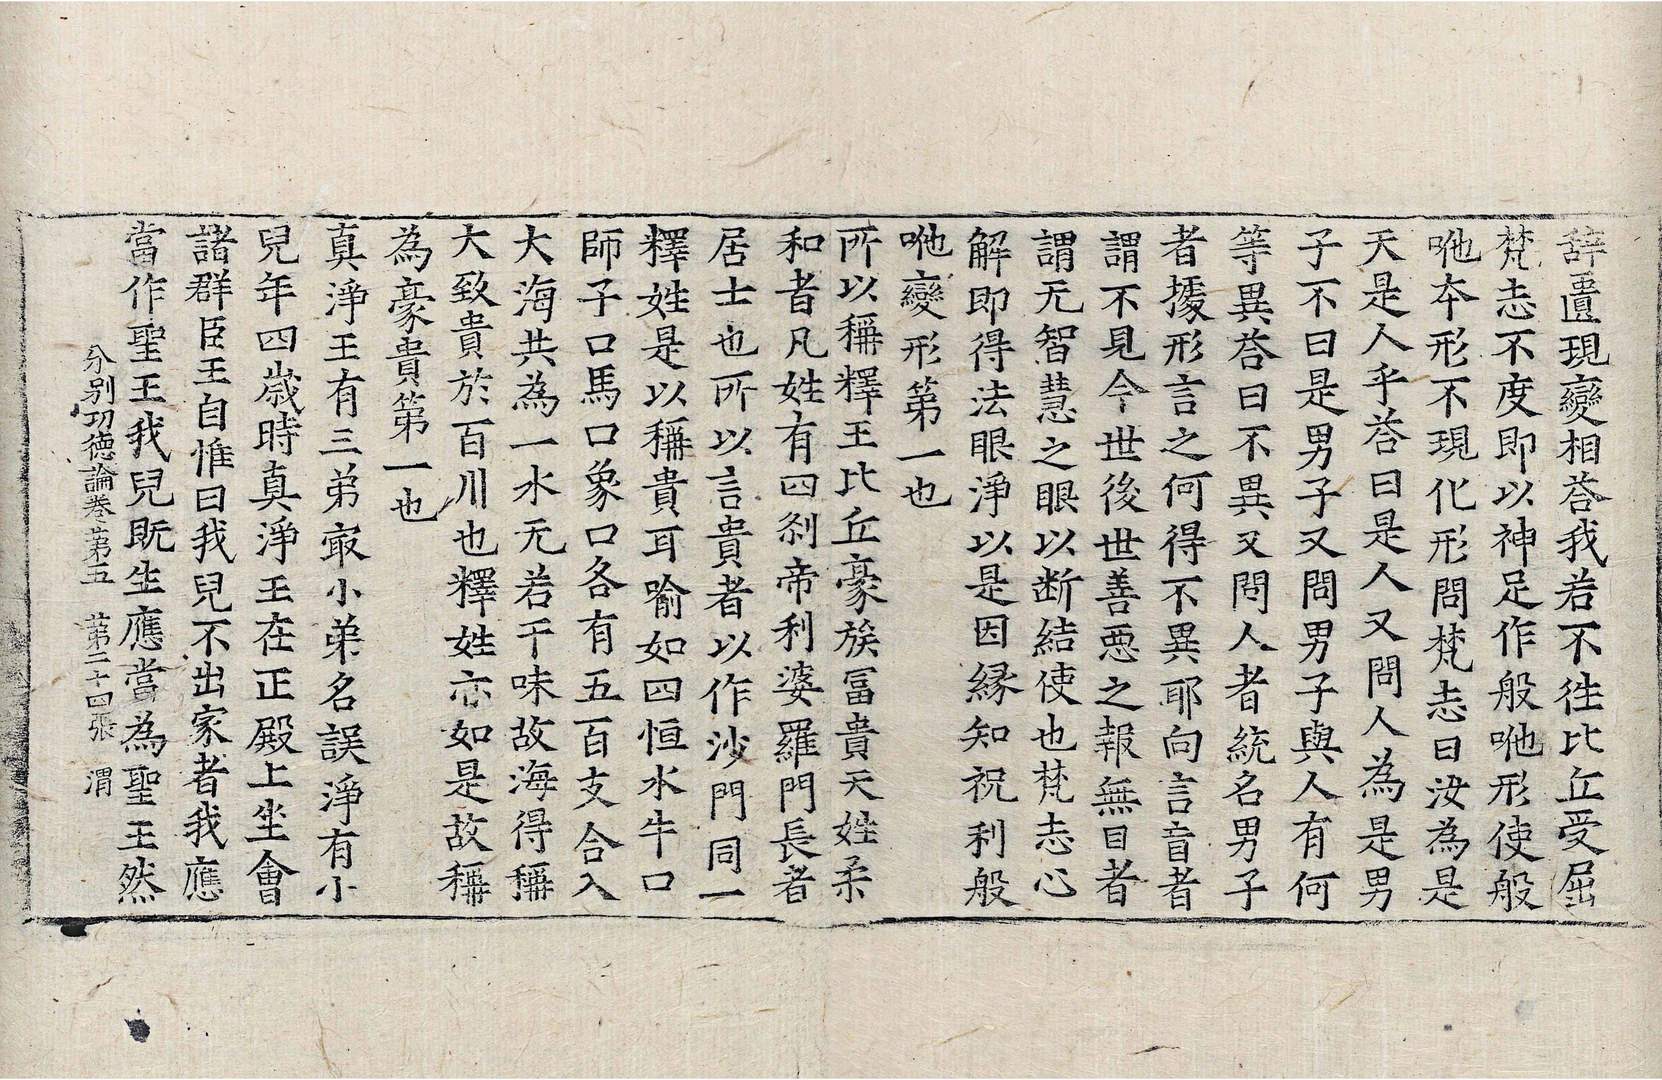 辞匱現變相荅我若不徃比丘受屈
梵志不度即以神足作般吔形使般
吔夲形不現化形問梵志曰汝為是
天是人乎荅曰是人又問人為是男
子不曰是男子又問男子與人有何
等異荅曰不異又問人者統名男子
者據形言之何得不異耶向言盲者
謂不見今世後世善惡之報無目者
謂无智慧之眼以断結使也梵志心
解即得法眼淨以是因縁知祝利般
吔變形第一也
所以稱釋王比丘豪族冨貴天姓柔
和者凡姓有四刹帝利婆羅門長者
居士也所以言貴者以作沙門同一
釋姓是以稱貴耳喻如四恒水牛口
師子口馬口象口各有五百支合入
大海共為一水无若干味故海得稱
大致貴於百川也釋姓亦如是故稱
為豪貴第一也
真淨王有三弟㝡小弟名誤淨有小
兒年四歲時真淨王在正殿上坐會
諸群臣王自惟曰我兒不出家者我應
當作聖王我兒既生應當為聖王然
分別功德論卷第五 第二十四張 渭